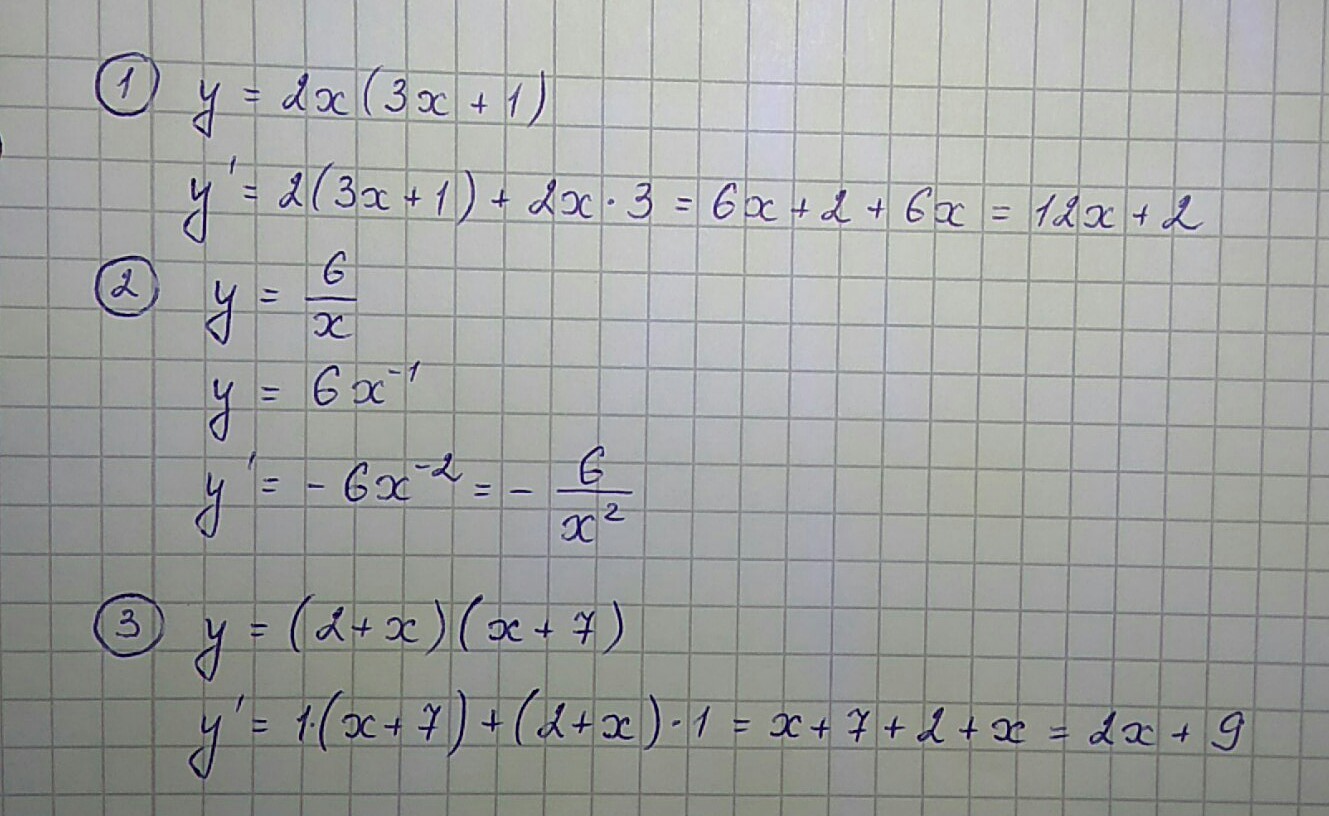 ① y = 2x(3x + 1)
y' = 2(3x + 1) + 2x · 3 = 6x + 2 + 6x = 12x + 2
② y = 6/x
y = 6x⁻¹
y' = - 6x⁻² = - 6/x²
③ y = (2 + x)(x + 7)
y' = 1·(x + 7) + (2 + x) · 1 = x + 7 + 2 + x = 2x + 9